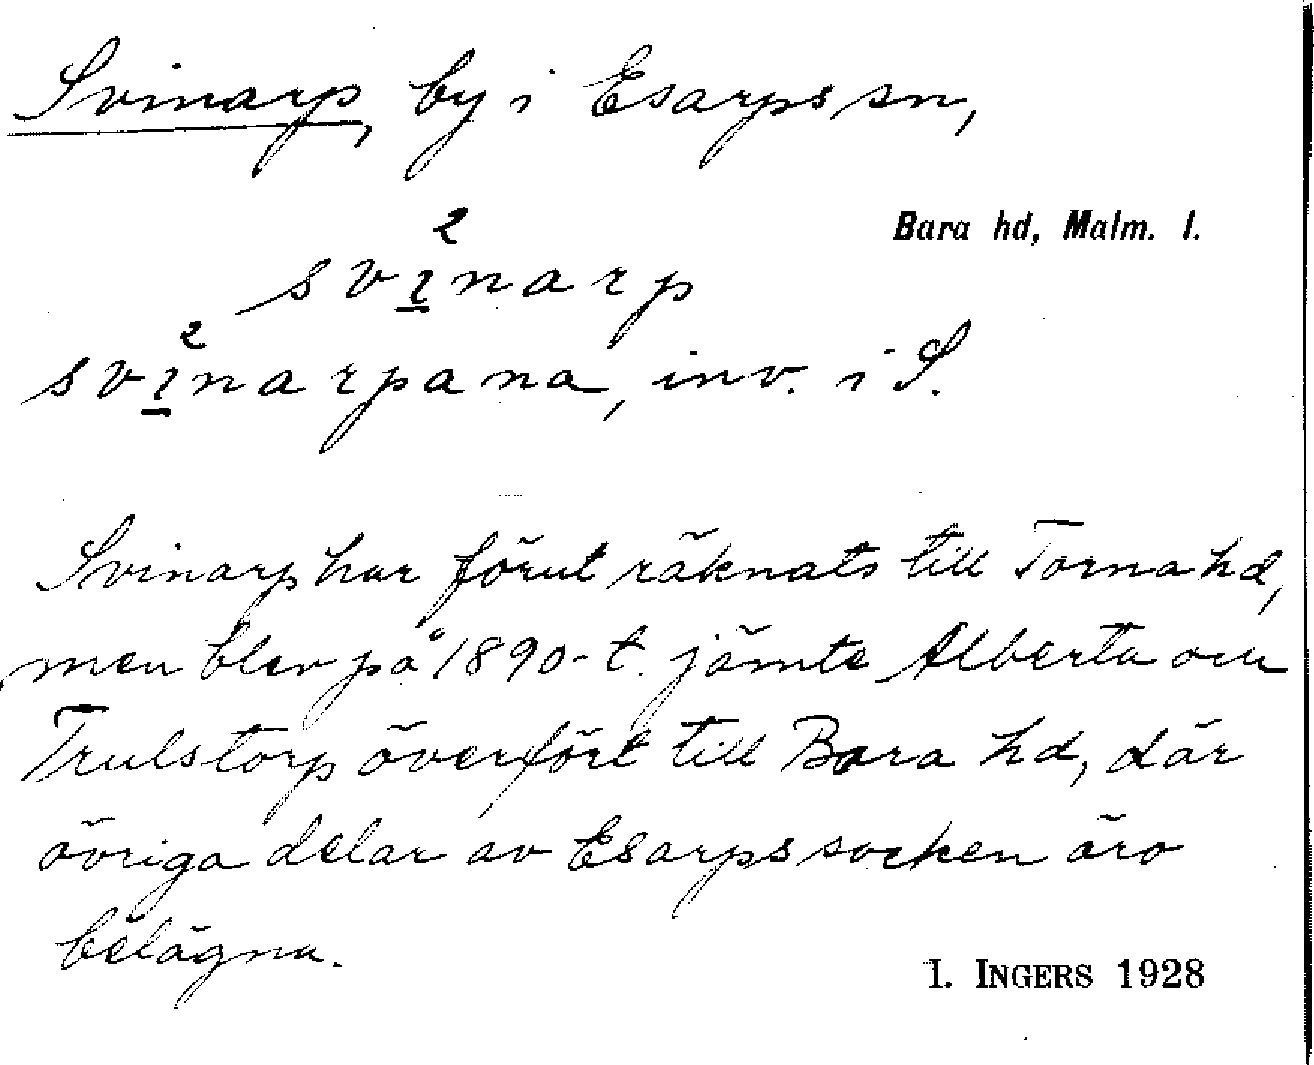 Svinarp, by i Esarps sn,
Bara hd, Malm. l.
svi̲²narp
svi̲²narpana, inv. i S.
Svinarp har förut räknats till Torna hd,
men blev på 1890-t. jämte Alberta och
Trulstorp överfört till Bara hd, där
övriga delar av Esarps socken äro
belägna.
I. INGERS 1928